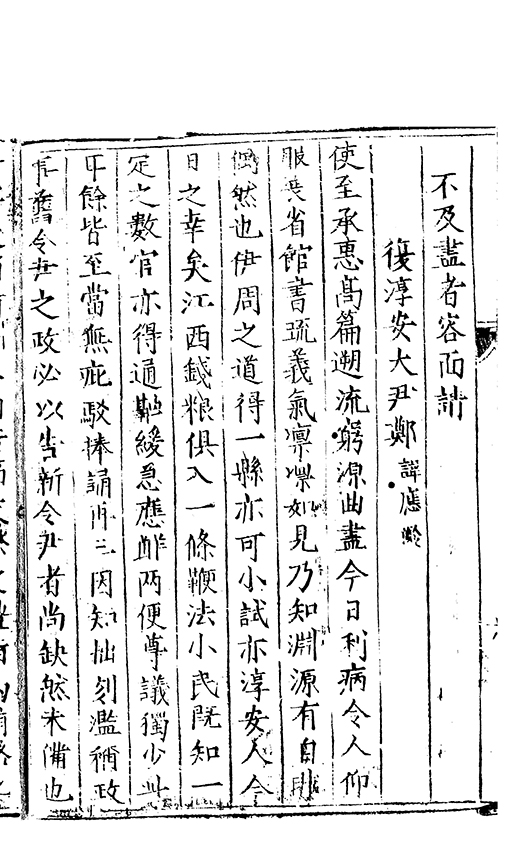 不及盡者容面請
復淳安大尹鄭諱應齡
使至承惠高篇遡流窮源曲盡今日利病令人仰
服喪省館書疏義氣凛凛如見乃知淵源有自非
偶然也伊周之道得一縣亦可小試亦淳安人今
日之幸矣江西錢粮俱入一條鞭法小民既知一
定之數官亦得通融緩急應酧兩便尊議獨少此
耳餘皆至當無疵駁捧誦再三因知拙刻濫稱政
長舊令尹之政必以告新令尹者尚缺然未備也